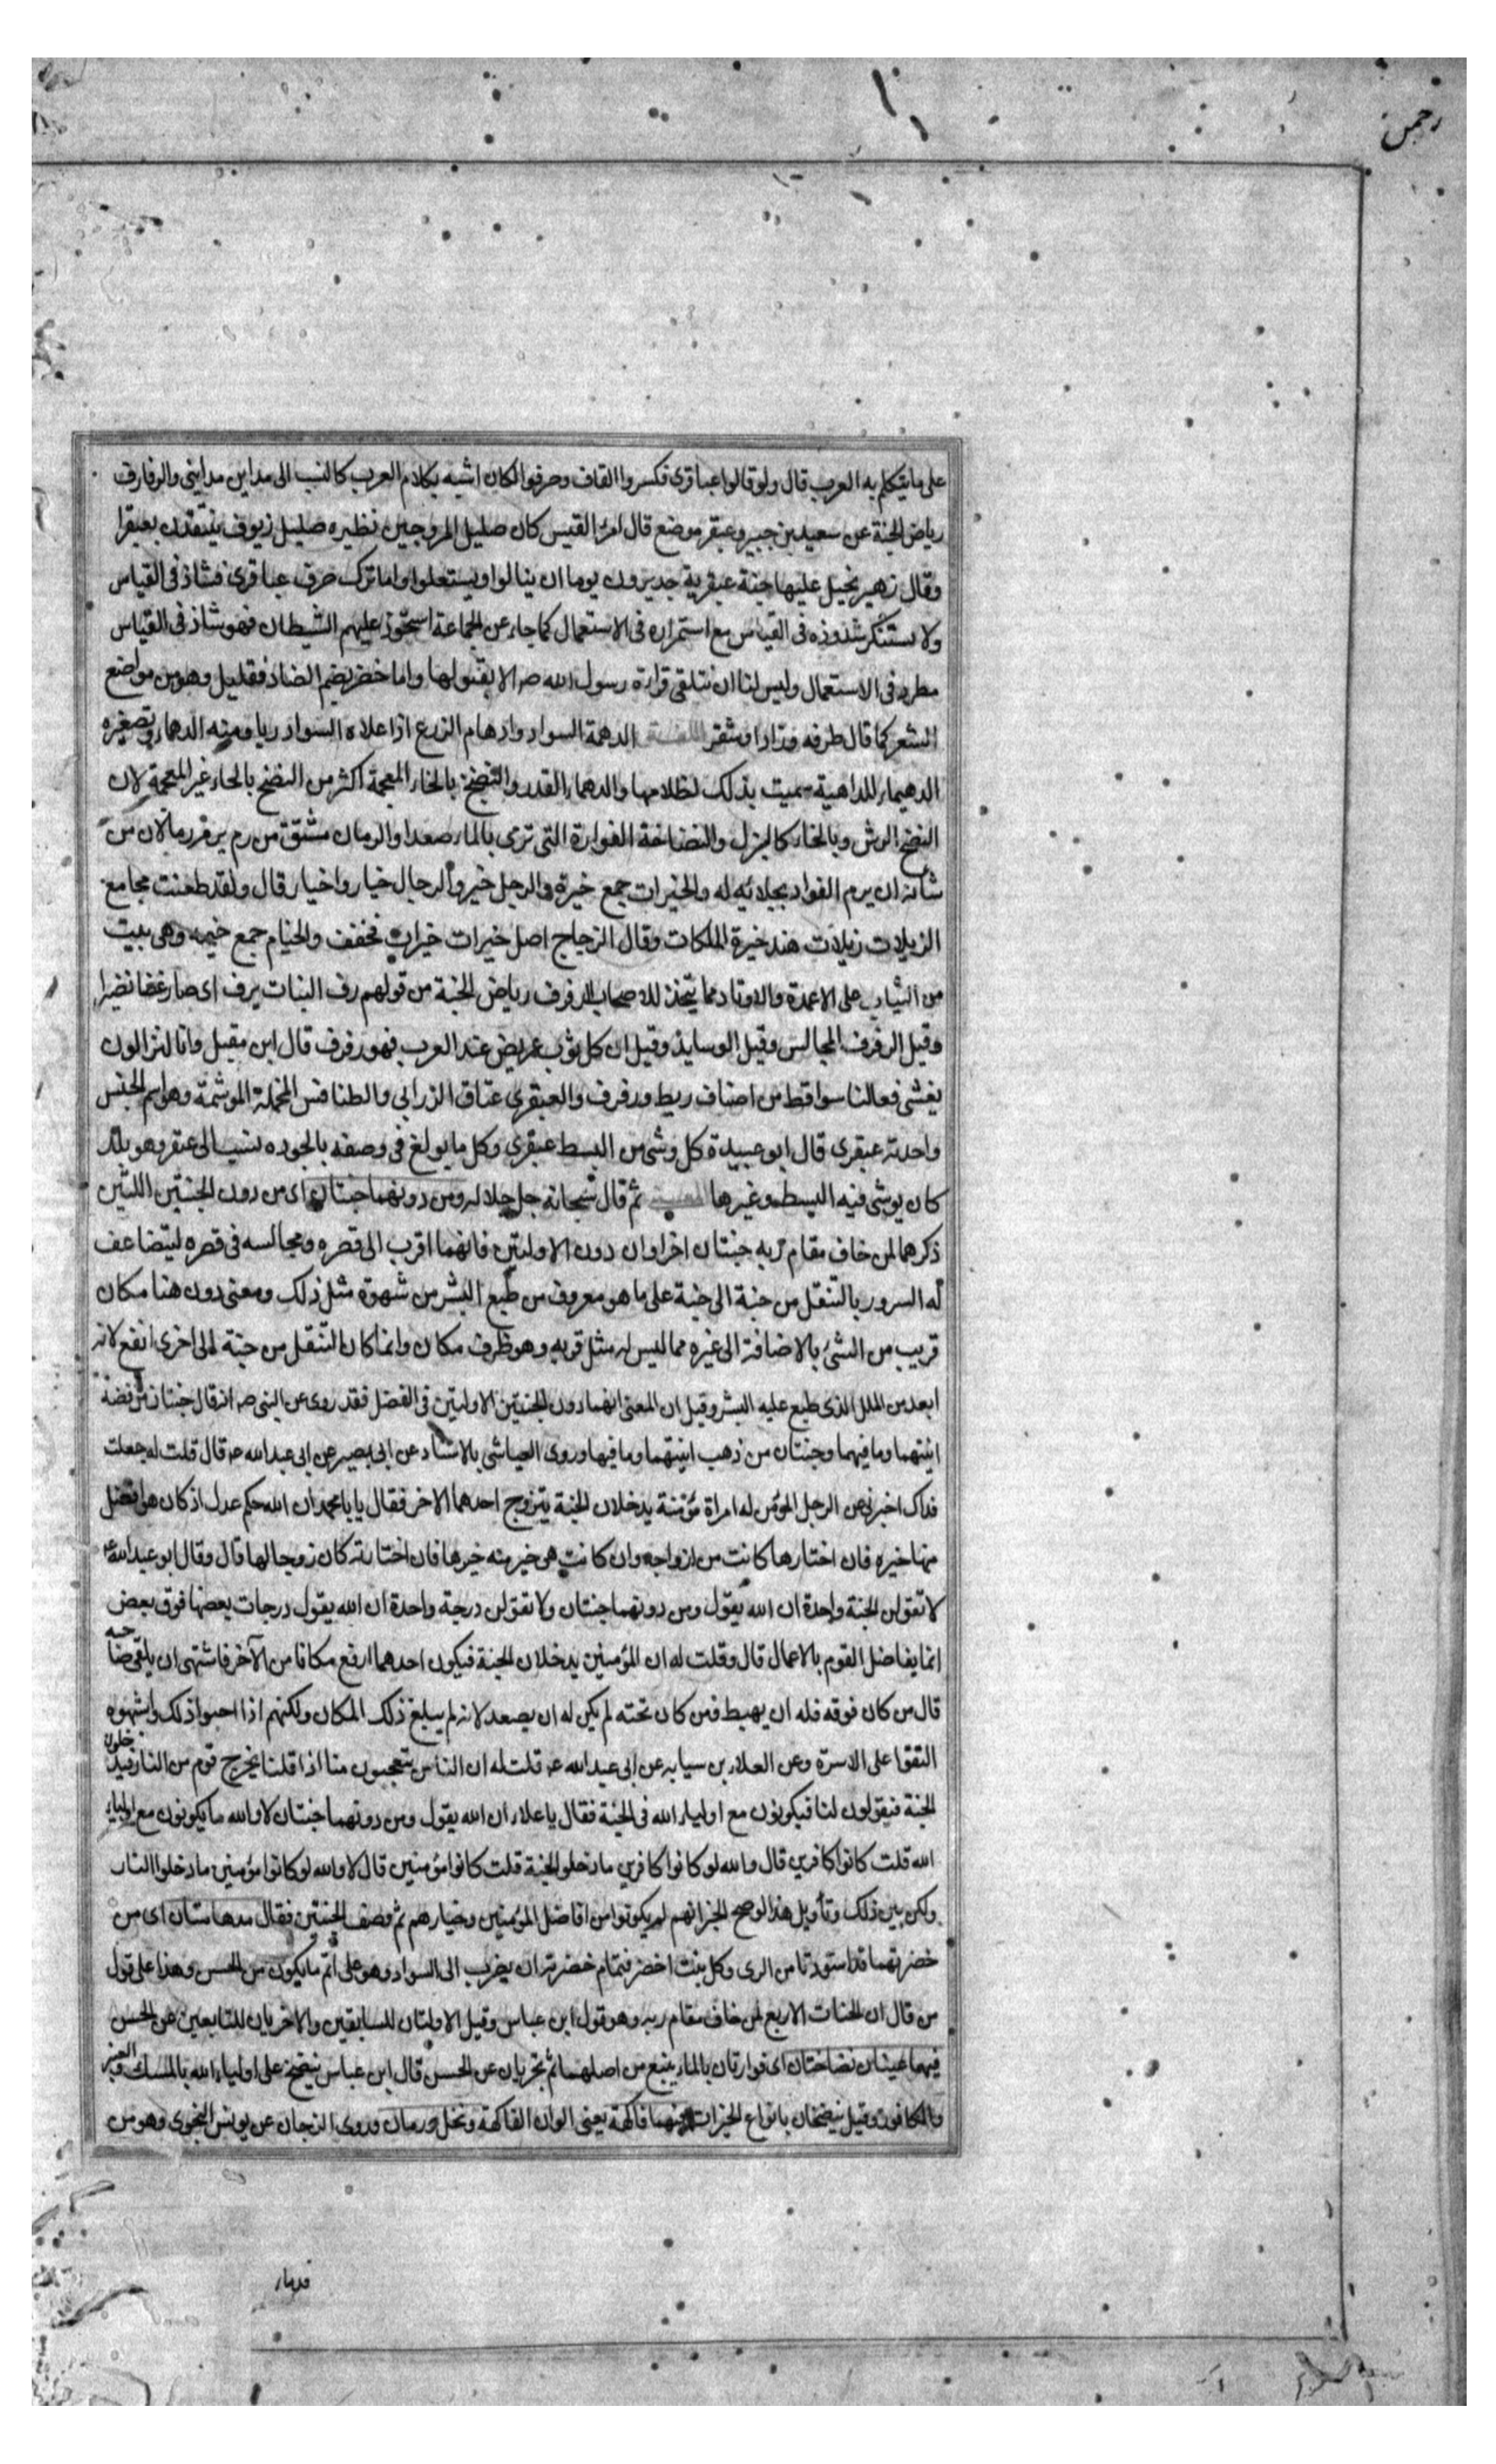 رحمن
على ما يتكلم به العرب قال ولو قالوا عباقرى فكسروا القاف وصرفوا لكان اشبه بكلام العرب كالنسب الى مداين مدايني والرفارف
رياض الجنة عن سعيد بن جبير وعبقر موضع قال امرء القيس كان صليل المروحين نظيره صليل زيوف ينتقدن بعبقرا
وقال زهير بخيل عليها جنة عبقرية جديرون يوما ان ينالوا ويستعلوا واما ترك صرف عباقرى فشاذ في القياس
ولا يستنكر شذوذه في القياس مع استمراره في الاستعمال كما جاء عن الجماعة استحوذ عليهم الشيطان فهو شاذ في القياس
مطرد في الاستعمال وليس لنا ان نتلقى قراءة رسول الله صه الا بقبولها واما خضر بضم الضاد فقليل وهو من مواضع
الشعر كما قال طرفه ورادا وشقر اللغة الدهمة السواد وادهام الزرع اذا علاه السواد ريا ومنه الدهماء وتصغيره
الدهيماء للداهية سميت بذلك لظلامها والدهماء القدر والنضخ بالخاء المعجمة اكثر من النضح بالحاء غير المعجمة لان
النضح الرش وبالخاء كالبزل والنضاخة الفوارة التى ترى بالماء صعدا والرمان مشتق من رم يرم رما لان من
شانه ان يرم الفواد بجلائه له والخيرات جمع خيرة والرجل خير والرجال خيار واخيار قال ولقد طعنت مجامع
الربلات ربلات هند خيرة الملكات وقال الزجاج اصل خيرات خيرات فخفف والخيام جمع خيمه وهى بيت
من الثياب على الاعمدة والاوتاد مما يتخذ للاصحاب الرفرف رياض الجنة من قولهم رف النبات يرف اى صار غضا نضيرا
وقيل الرفرف المجالس وقيل الوسايد وقيل ان كل ثوب عريض عند العرب فهو رفرف قال ابن مقبل وانا لنزالون
يغشى فعالنا سواقط من اصناف ريط ورفرف والعبقرى عتاق الزرابي والطنافس المخملة الموشمة وهو اسم الجنس
واحدته عبقرى قال ابو عبيدة كل وشى من البسط عبقرى وكل ما بولغ في وصفه بالجوده ينسب الى عبقر وهو بلد
كان يوشى فيه البسط وغيرها المعنى ثم قال سبحانه جل جلاله ومن دونهما جنتان اى من دون الجنتين اللتين
ذكرهما لمن خاف مقام ربه جنتان اخراوان دون الاولتين فانهما اقرب الى قصره ومجالسه في قصره ليتضاعف
له السرور بالتنقل من جنة الى جنة على ما هو معروف من طبع البشر من شهوة مثل ذلك ومعنى دون هنا مكان
قريب من الشئ بالاضافة الى غيره مما ليس له مثل قربه وهو ظرف مكان وانما كان التنقل من جنة الى اخرى انفع لانه
ابعد من الملل الذى طبع عليه البشر وقيل ان المعنى انهما دون الجنتين الاولتين في الفضل فقد روى عن النبى صه انه قال جنتان من فضة
ابنيتهما وما فيهما وجنتان من ذهب ابنيتهما وما فيها وروى العياشى بالاسناد عن ابى بصير عن ابى عبد الله عه قال قلت له جعلت
فداك اخبرنى عن الرجل المؤمن له امراة مؤمنة يدخلان الجنة يتزوج احدهما الاخر فقال يا با محمد ان الله حكم عدل اذ كان هو افضل
منها خيره فان اختارها كانت من ازواجه وان كانت هى خير منه خيرها فان اختارته كان زوجا لها قال وقال ابو عبد الله عه
لا تقولن الجنة واحدة ان الله يقول ومن دونهما جنتان ولا تقولن درجة واحدة ان الله يقول درجات بعضها فوق بعض
انما يفاضل القوم بالاعمال قال وقلت له ان المؤمنين يدخلان الجنة فيكون احدهما ارفع مكانا من الآخر فاشتهى ان يلقى صاحبه
قال من كان فوقه فله ان يهبط فمن كان تحته لم يكن له ان يصعد لانه لم يبلغ ذلك المكان ولكنهم اذا احبوا ذلك واشتهوه
التقوا على الاسرة وعن العلاء بن سيابه عن ابى عبد الله عه قلت له ان الناس يتعجبون منا اذا قلنا يخرج قوم من النار فيدخلون
الجنة فيقولون لنا فيكونون مع اولياء الله في الجنة فقال يا علاء ان الله يقول ومن دونهما جنتان لا والله ما يكونون مع اولياء
الله قلت كانوا كافرين قال والله لو كانوا كافرين ما دخلوا الجنة قلت كانوا مؤمنين قال لا والله لو كانوا مؤمنين ما دخلوا النار
ولكن بين ذلك وتأويل هذا لو صح الخبر انهم لم يكونوا من افاضل المؤمنين وخيارهم ثم وصف الجنتين فقال مدهامتان اى من
خضرتهما قد اسودتا من الرى وكل نبت اخضر فتمام خضرته ان يضرب الى السواد وهو على اتم ما يكون من الحسن وهذا على قول
من قال ان الجنات الاربع لمن خاف مقام ربه وهو قول ابن عباس وقيل الاولتان للسابقين والاخريان للتابعين عن الحسن
فيهما عينان نضاختان اى فوارتان بالماء ينبع من اصلهما ثم تجريان عن الحسن قال ابن عباس ينضخ على اولياء الله بالمسك والعنبر
والكافور وقيل ينضخان بانواع الخيرات فيهما فاكهة يعنى الوان الفاكهة ونخل ورمان وروى الزجاج عن يونس النحوى وهو من
قدماء